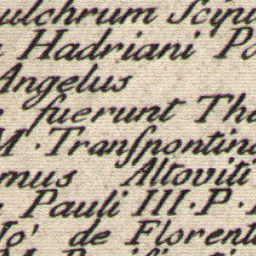 ulchrum Scipi
Hadriani Po
Angelus
fuerunt The
M. Transpontina
mus Altoviti
Pauli III. P.
Jo' de Florent